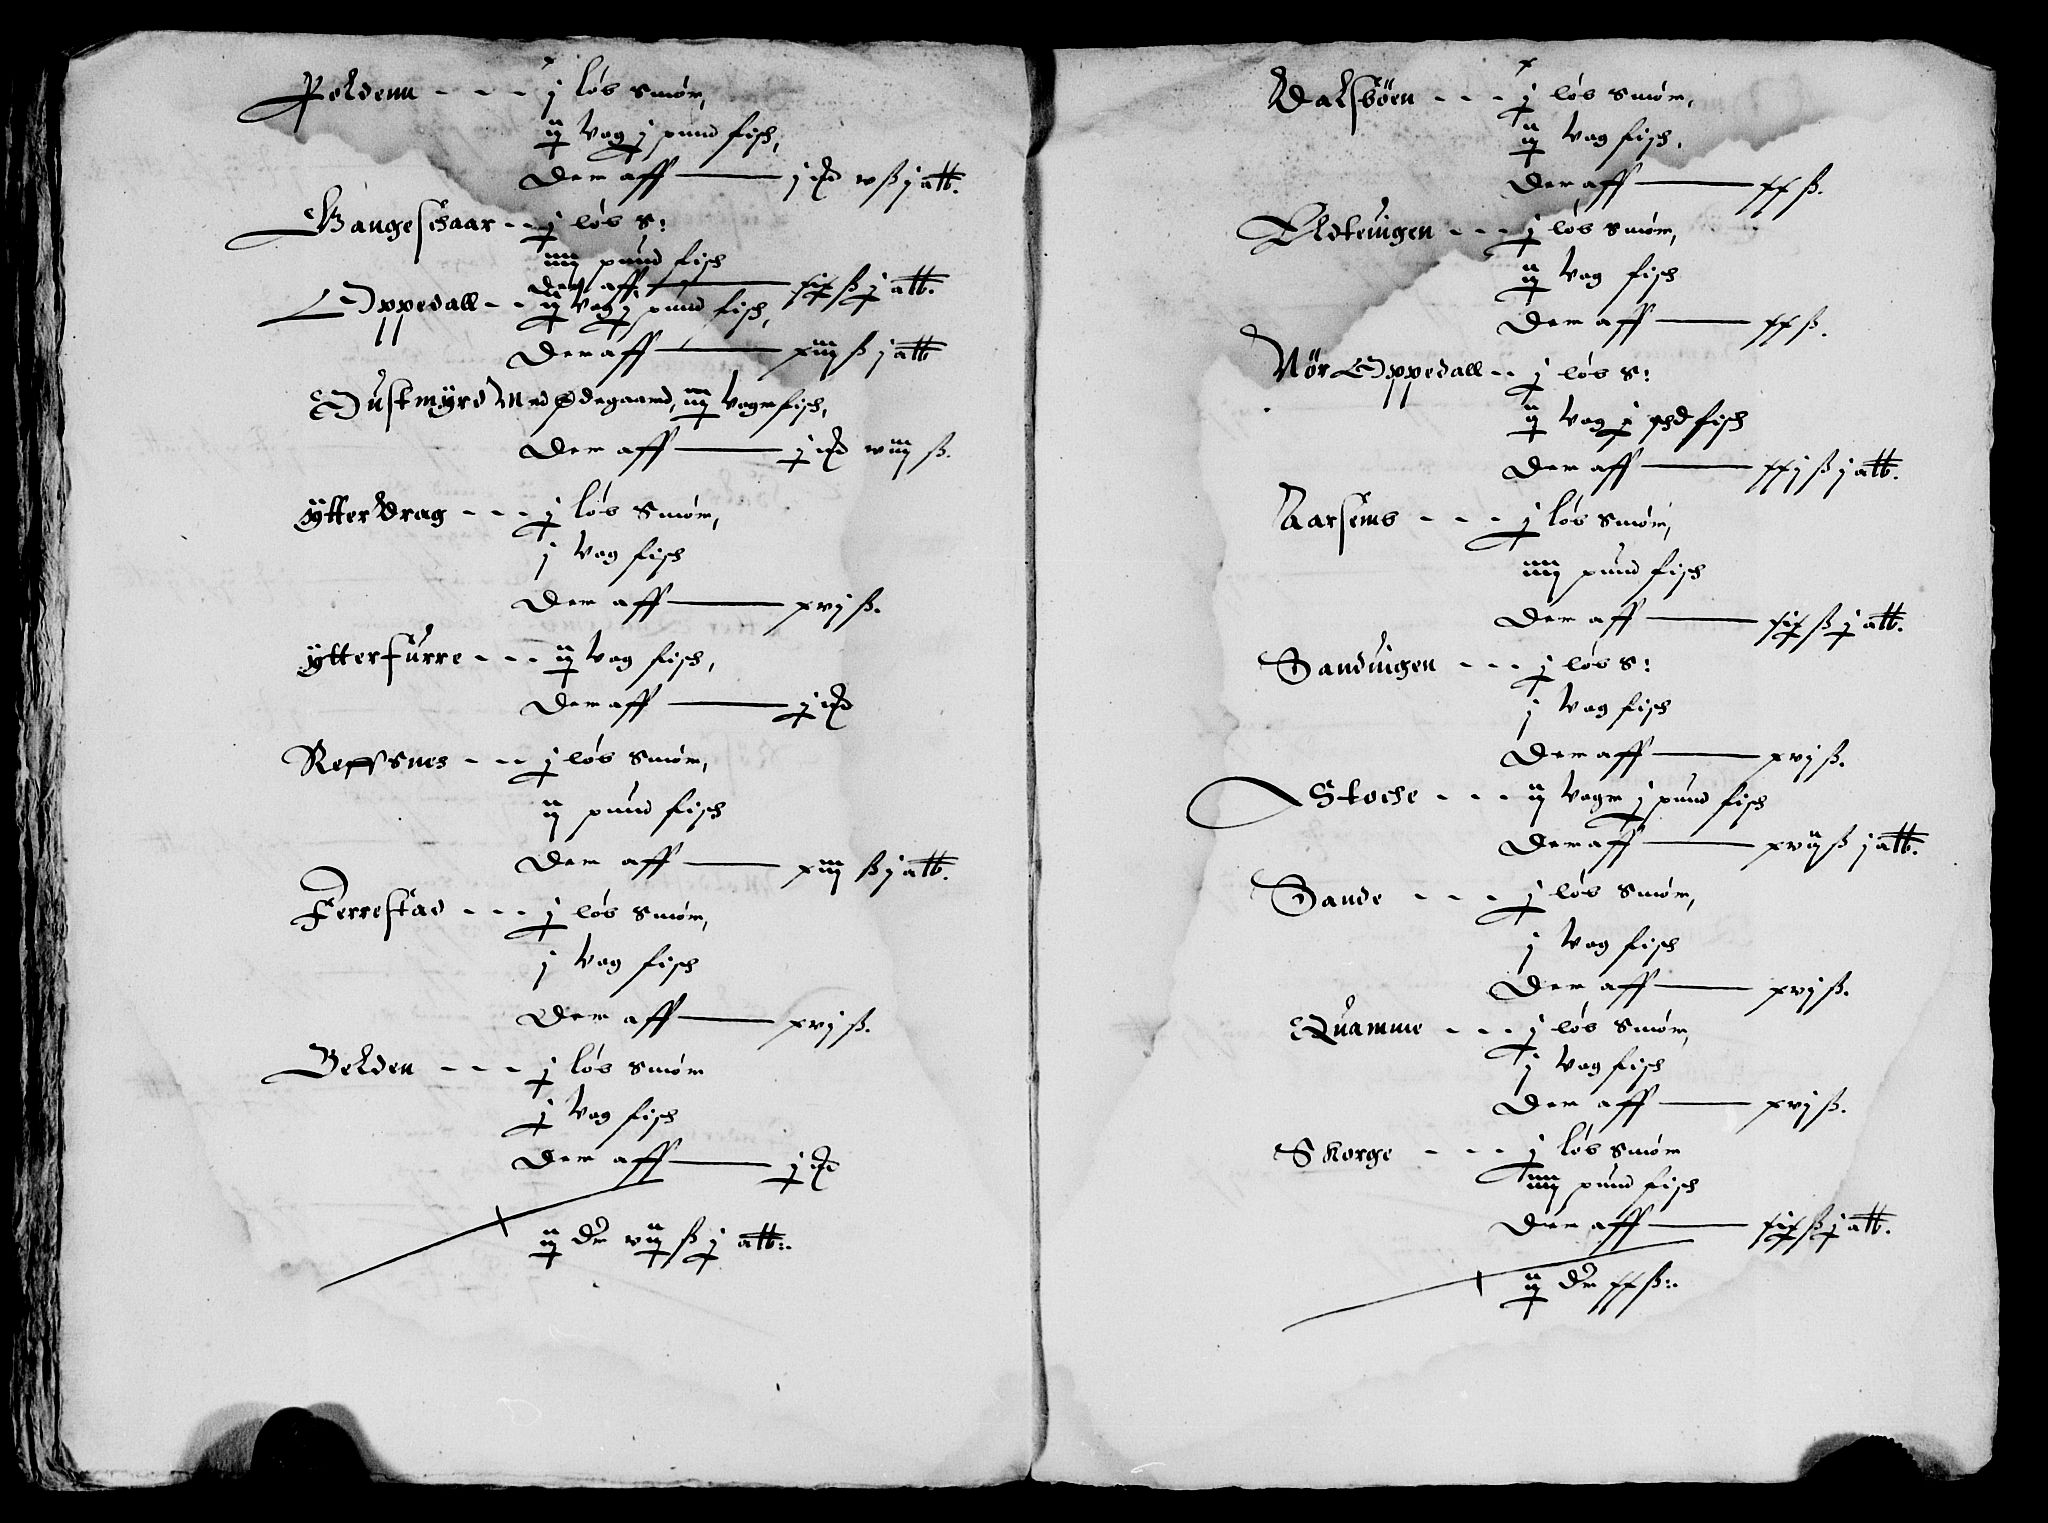 Poldenn - - - j løb smør,
ij vog j pund fisch,
Der aff — j  vß j alb.
Bangeschaar - - j løb s:
iiij pund fisch
der aff, — xix ß j alb.
Oppedall - - ij vog j pund fisch,
Der aff — xiij ß j alb
Gustmyrd Med Ødegaard, iij voger fisch,
Der aff — j  viij ß.
ytter Drag - - - j løb smør,
j vog fisch
Der aff — xvj ß.
ytterfurre - - - ij vog fisch,
Der aff — j
Reffsnes - - - j løb smør,
ij pund fisch
Der aff — xiij ß j alb.
Ferrestad - - - j løb smør,
j vog fisch
Der aff — xvj ß.
Belden - - - j løb smør
j vog fisch
Der aff — j
ij dr vij ß j alb:.
Dalsböen - - - j løb smør,
ij vog fisch,
Der aff — xx ß.
Eldeuigen - - - j løb smør,
ij vog fisch
Der aff — xx ß.
Nör Oppedall - - j løb s:
ij vog j phd fisch
Der aff — xxj ß j alb.
Aarsems - - - j løb smør,
iiij pund fisch
Der aff — xix ß j alb.
Sanduigen - - - j løb s:
j vog fisch
Der aff — xvj ß.
Stoche - - - ij voger j pund fisch
Der aff — xvij ß j alb.
Sande - - - j løb smør,
j vog fisch
Der aff — xvj ß.
Quamme - - - j løb smør,
j vog fisch
Der aff — xvj ß.
Skorge - - - j løb smør
iiij pund fisch
Der aff — xix ß j alb.
ij dr xx ß:.